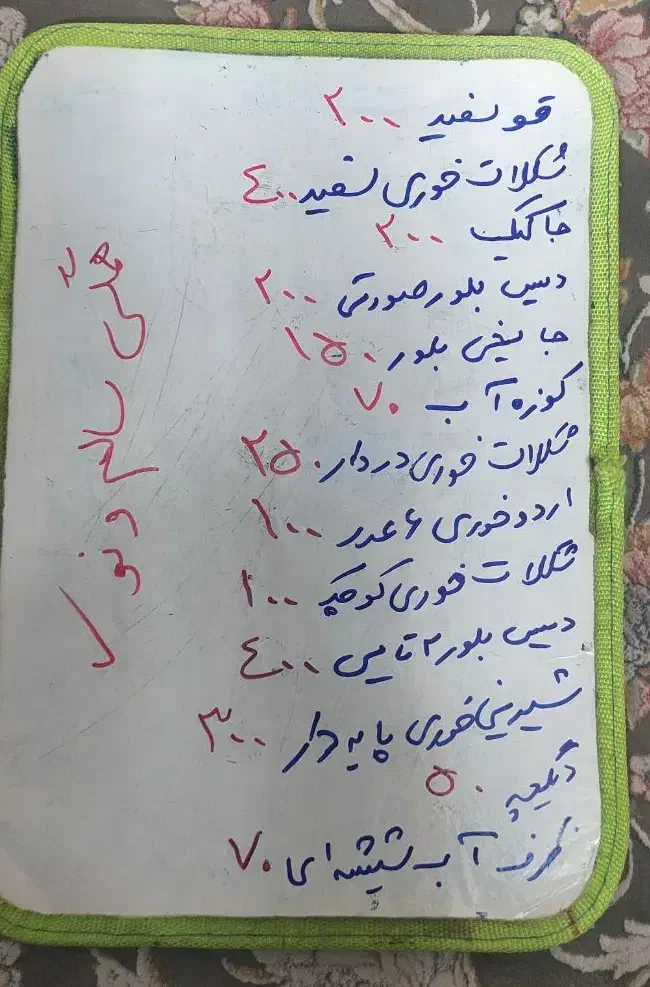 قو سفید ۲۰۰
شکلات خوری سفید ۴۰۰
جا کیک ۲۰۰
دیس بلور صورتی ۲۰۰
جا یخی بلور ۱۵۰
کوزه آب ۷۰
شکلات خوری در دار ۲۵۰
اردو خوری ۶ عدد ۱۰۰
شکلات خوری کوچک ۱۰۰
دیس بلور ۲ تایی ۴۰۰
شیرینی خوری پایه دار ۳۰۰
دیگچه ۵۰
ظرف آب شیشه ای ۷۰
همگی سالم و نو